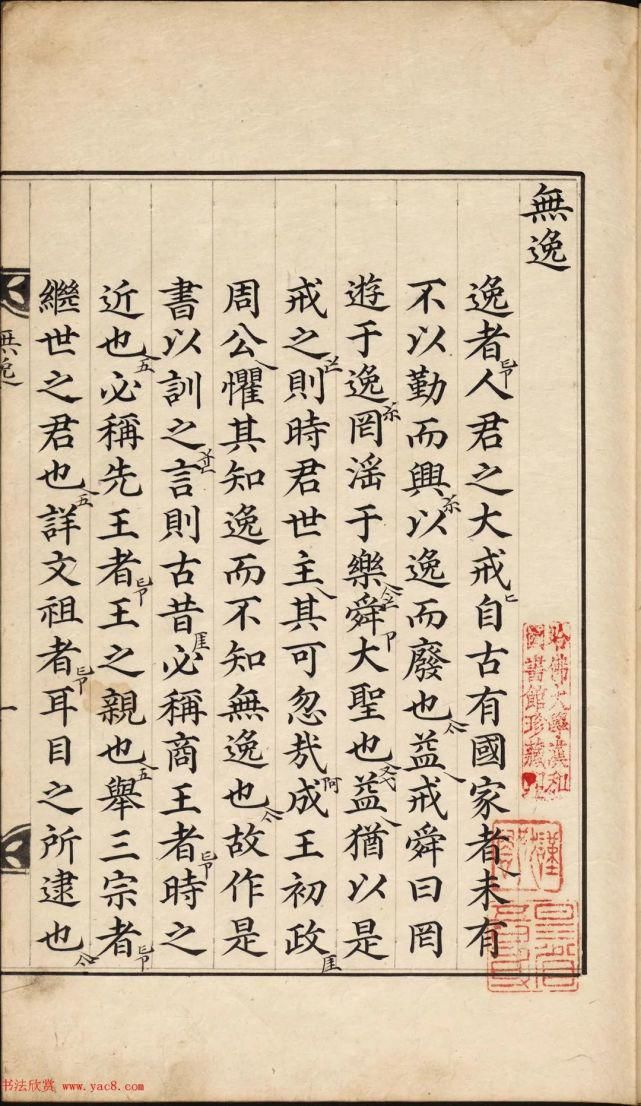 無逸
逸者人君之大戒自古有國家者未有
不以勤而興以逸而廢也益戒舜曰罔
遊于逸罔滛于樂舜大聖也益猶以是
戒之則時君世主其可忽哉成王初政
周公懼其知逸而不知無逸也故作是
書以訓之言則古昔必稱商王者時之
近也必稱先王者王之親也舉三宗者
繼世之君也詳文祖者耳目之所逮也
無逸
一
哈佛大學漢和
圖書館珍藏印
书法欣赏 www.yac8.com